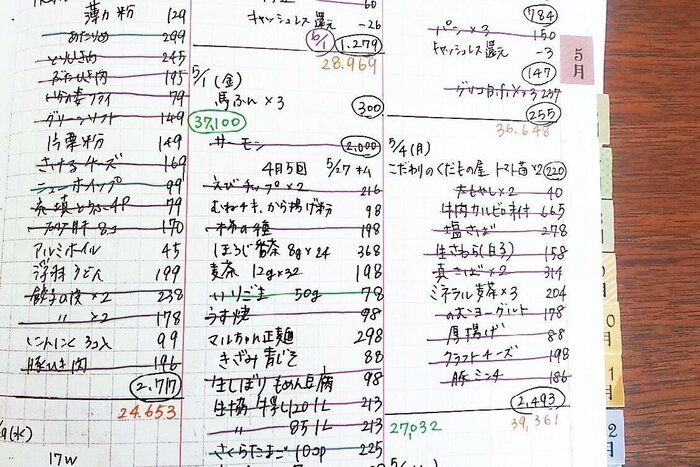 薄力粉 129
あたりめ 299
とりひき肉 245
ぶたひき肉 195
いかの姿フライ 79
グリーンソフト 149
片栗粉 149
さけるチーズ 169
ニューホイップ 99
充填とうふ4P 79
170
アルミホイル 45
うどん 199
餃子の皮×2 238
〃 ×2 178
にんにく 99
豚ひき肉 196
2,717
24.653
(水)
17W
60
キャッシュレス還元 -26
6/1 1,279
28.969
5/1(金)
馬ふん×3 300
37,100
サーモン 2,000
4月5回 5/27
えびチップ×2 216
むねチキ、から揚げ粉 98
柿の種 198
ほうじ番茶 8g×24 368
麦茶 12g×32 198
いりごま 50g 78
うす焼 98
マルちゃん正麺 298
きざみ青じそ 88
生しぼりもめん豆腐 98
生協 牛乳 120 1L 213
〃 85 1L 213
さくらたまご 10コP 225
784
パン×3 150
キャッシュレス還元 -3
147
グリコ ×3 237
255
36.648
5/4(月)
こだわりのくだもの屋 トマト苗×2 220
太もやし×2 40
牛肉カルビの味付 665
塩さば 278
生さわら(白子) 158
真さば×2 314
ミネラル麦茶×3 204
のむヨーグルト 178
厚揚げ 88
クラフトチーズ 198
豚ミンチ 186
2,493
27,032 39,361
5月